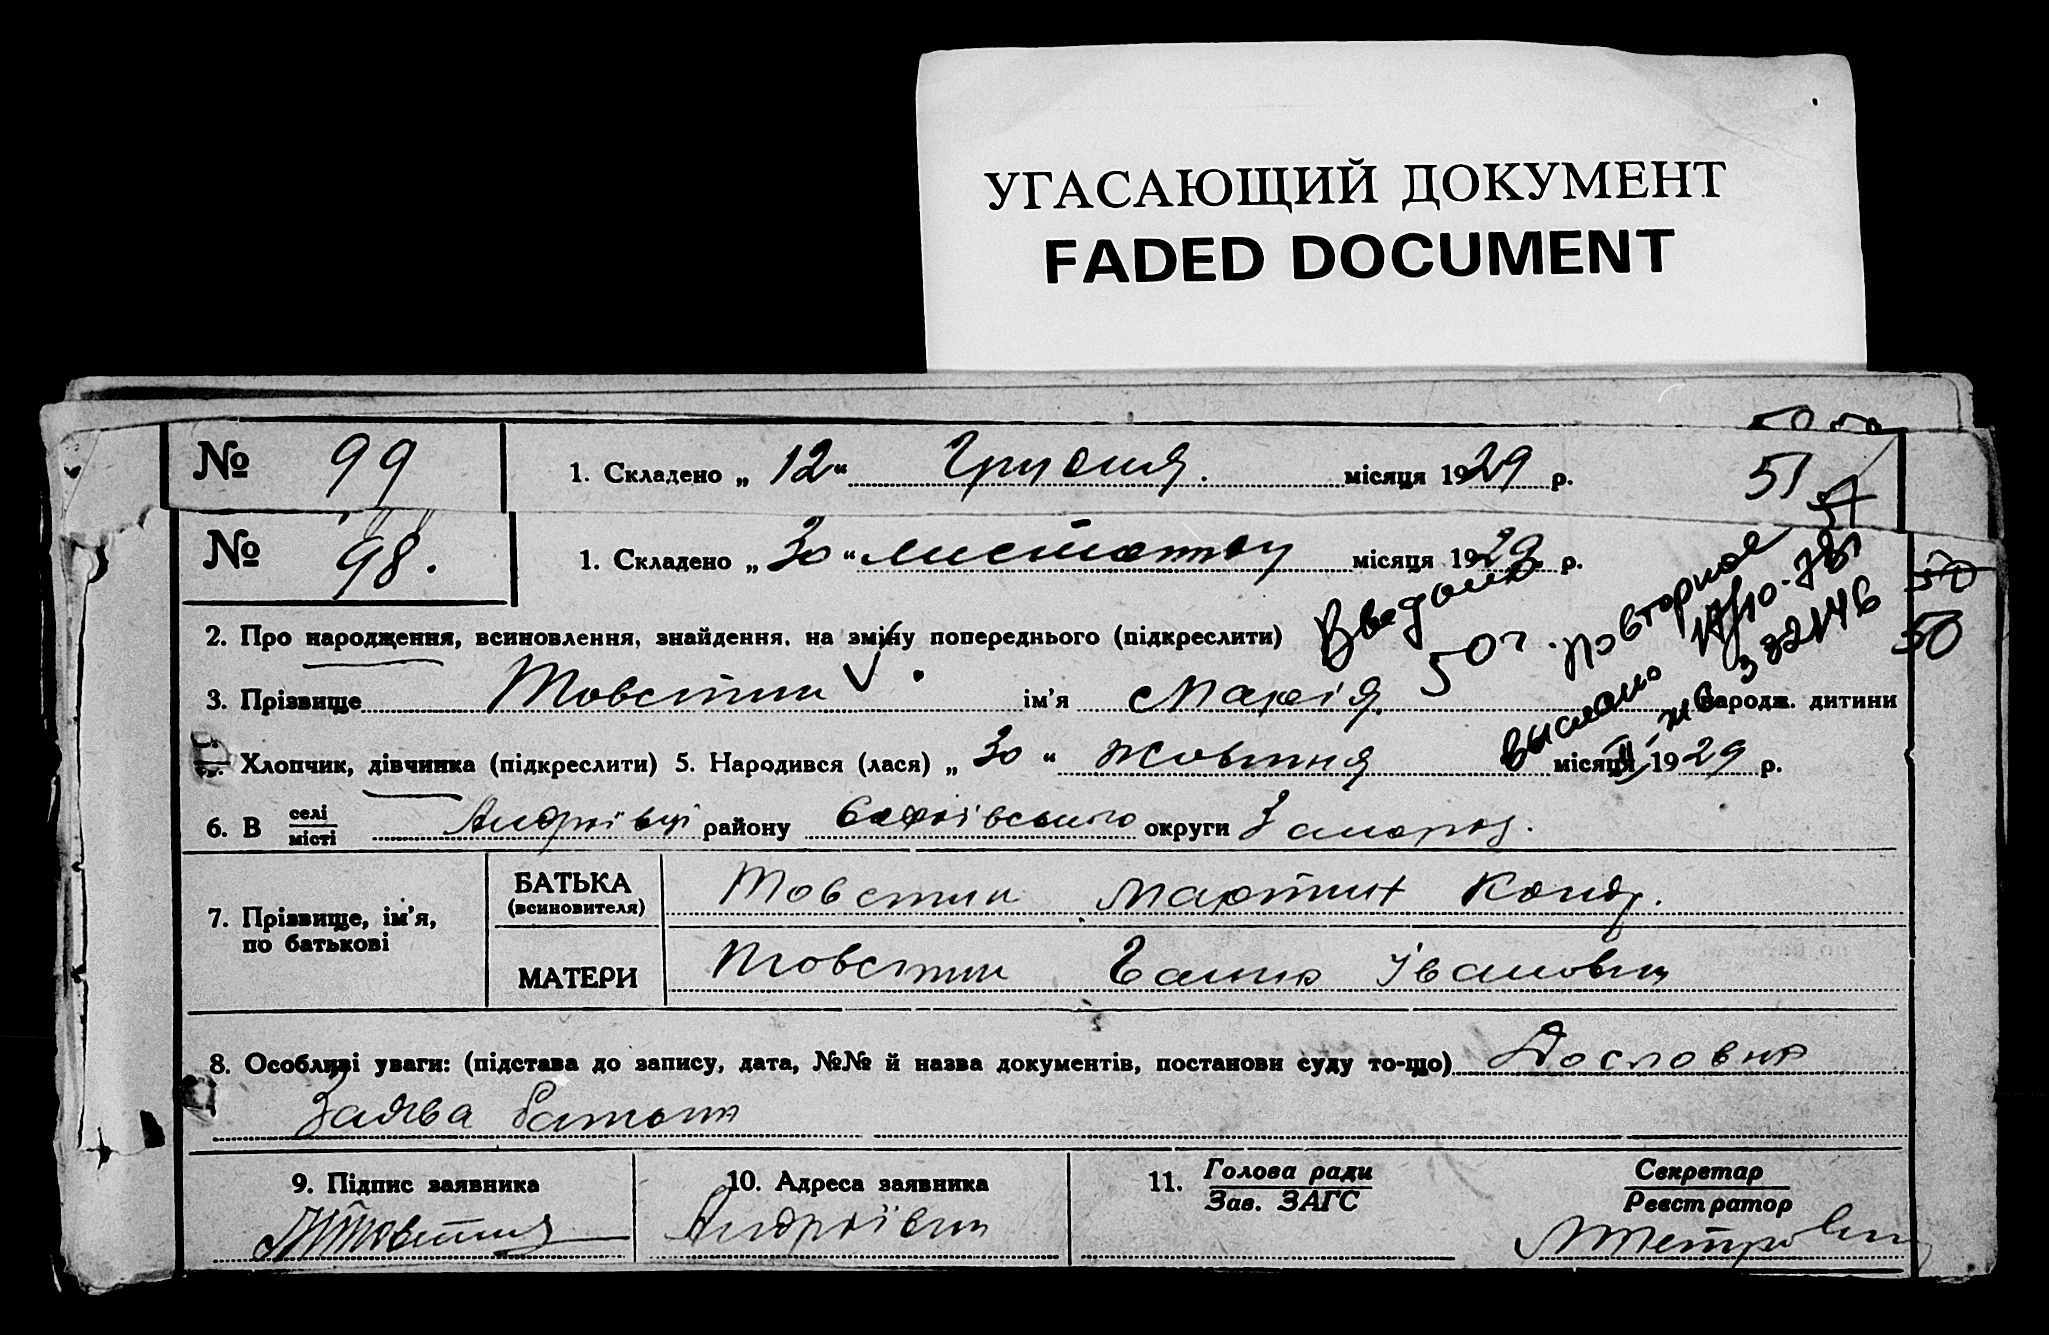 УГАСАЮЩИЙ ДОКУМЕНТ
FADED DOCUMENT
№ 99 1. Складено „ 12 “ Грудня. місяця 1929 р. 51
№ 98. 1. Складено „ 30 “ листопаду місяця 1929 р.
50
2. Про народження, всиновлення, знайдення, на зміну попереднього (підкреслити)
3. Прізвище Товстик ім'я Марія народж. дитини
Хлопчик, дівчинка (підкреслити) 5. Народився (лася) „ 30 “ жовтня місяця 1929 р.
6. В селі/місті Андріївці району округи Запоріз.
7. Прізвище, ім'я, по батькові
БАТЬКА (всиновителя) Товстик Мартин Кондр.
МАТЕРИ Товстик Ганна Іванов
8. Особливі уваги: (підстава до запису, дата, №№ й назва документів, постанови суду то-що) Дословна
Заява батька
9. Підпис заявника 10. Адреса заявника 11. Голова ради/Зав. ЗАГС Секретар/Реєстратор
Андріївка
повторное
выслано